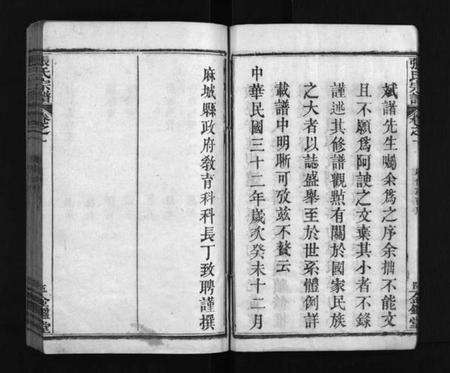 斌譜先生囑余爲之序余拙不能文
且不願爲阿諛之文棄其小者不錄
謹述其修譜觀點有關於國家民族
之大者以誌盛舉至於世系體例詳
載譜中明晰可攷茲不贅云
中華民國三十二年歲次癸未十二月
麻城縣政府教育科科長丁致聘謹撰
張氏宗譜
卷之一
金鑑堂